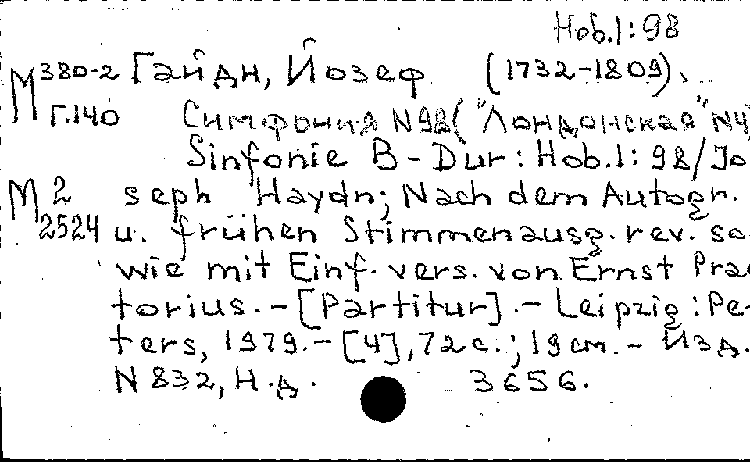 Hob.I:98
М 380-2 Гайдн, Йозеф (1732-1809).
Г.140 Симфония N98 ("Лондонская" N4)
Sinfonie B-Dur: Hob.I: 98/Jo
М 2 seph Haydn; Nach dem Autogr.
2524 u. frühen Stimmenausg. rev. so-
wie mit Einf. vers. von Ernst Prae
torius. - [Partitur]. - Leipzig: Pe-
ters, 1979. - [4], 72 с.; 19 см. - Изд.
N 832, Н.д. 3656.